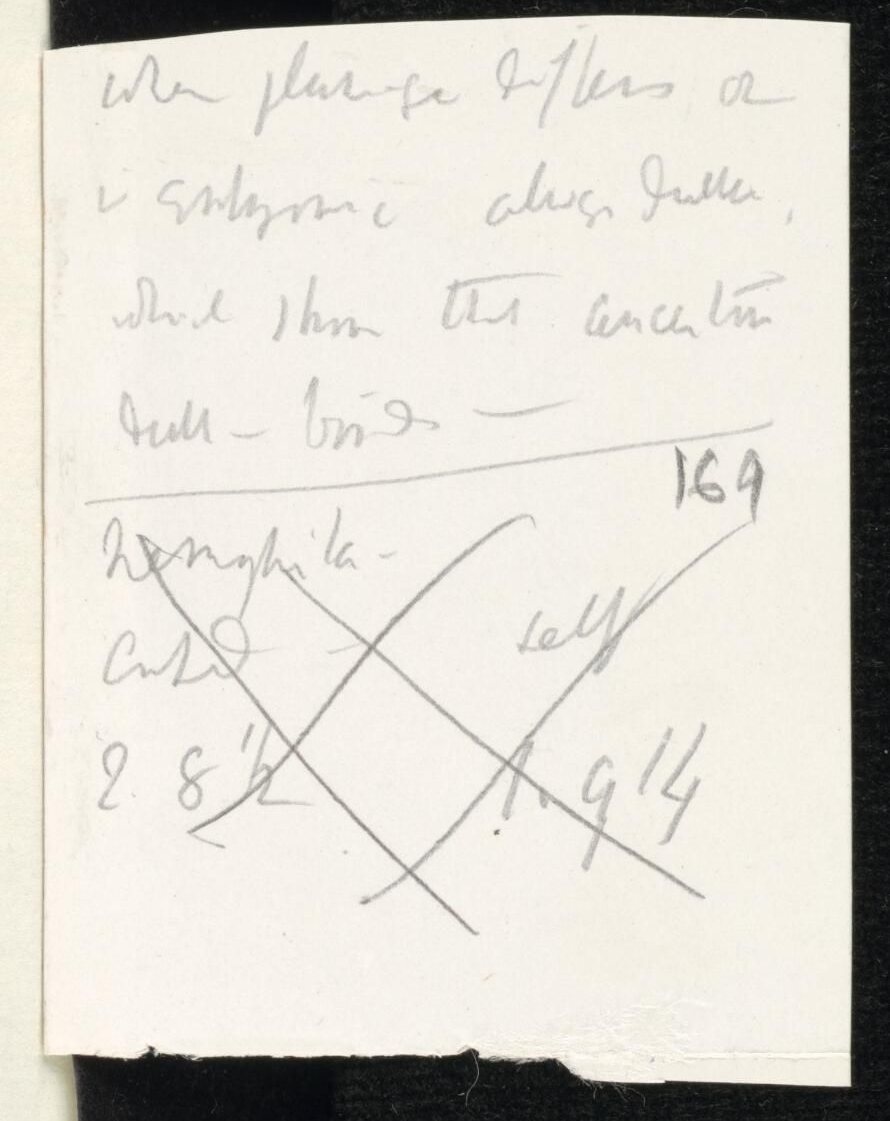 when plumage differs or
is embryonic always duller,
which shows that ancestors
dull- birds —
169
self
2. 8 1/2 1. 9 1/4